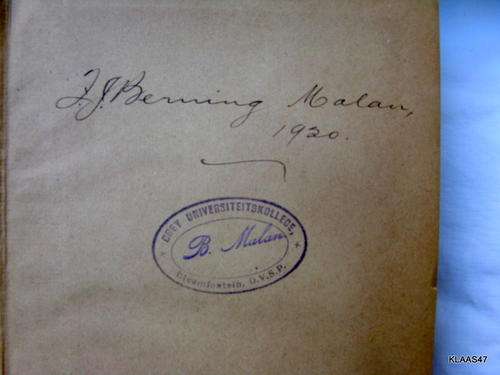 J.J. Berning Malan,
1920.
GREY UNIVERSITEITSKOLLEGE,
B. Malan
Bloemfontein, O.V.S.P.
KLAAS47